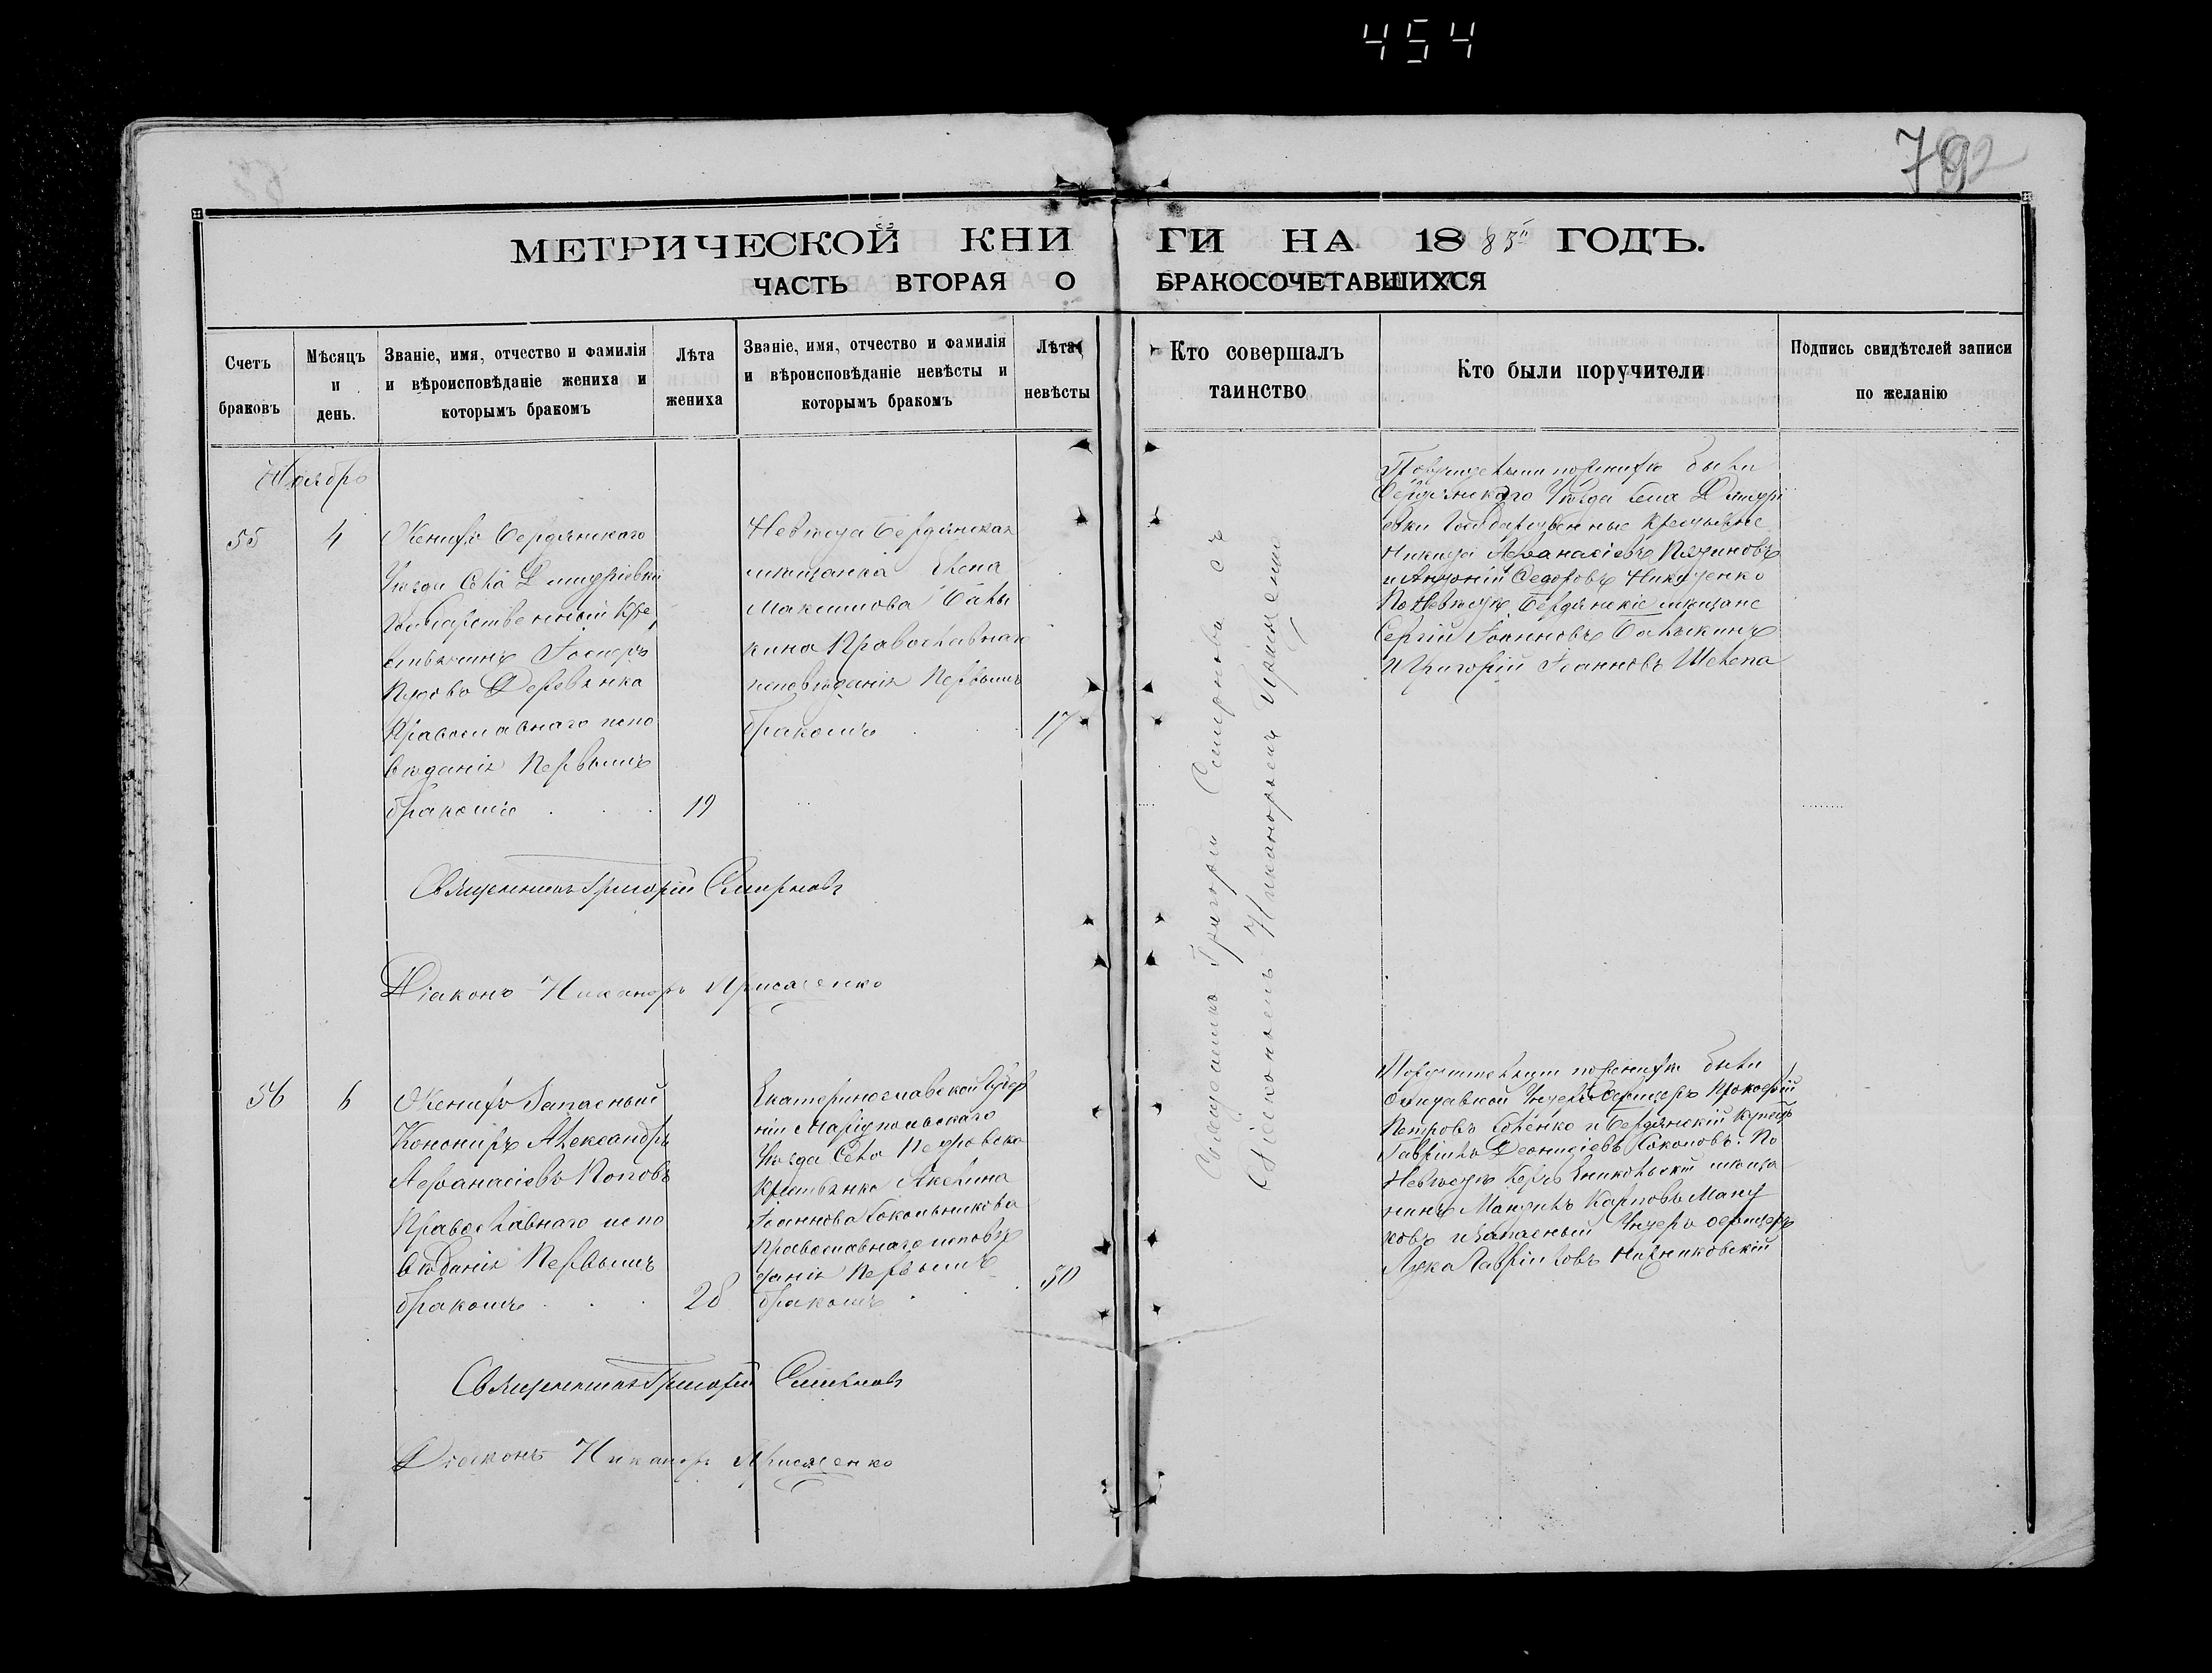 454
792
МЕТРИЧЕСКОЙ КНИГИ НА 1885й ГОДЪ.
ЧАСТЬ ВТОРАЯ О БРАКОСОЧЕТАВШИХСЯ
Счетъ браковъ
Мѣсяцъ и день.
Званіе, имя, отчество и фамилія
и вѣроисповѣданіе жениха и
которымъ бракомъ
Лѣта
жениха
Званіе, имя, отчество и фамилія
и вѣроисповѣданіе невѣсты и
которымъ бракомъ
Лѣта
невѣсты
Кто совершалъ
таинство
Кто были поручители
Подпись свидѣтелей записи
по желанію
Ноябрь
55
4
Женихъ Бердянскаго
Уѣзда Села Дмитріевки
Государственный Кре
стьянинъ
Деревянка
Православнаго испо
вѣданія Первымъ
бракомъ
19
Невѣста Бердянская
мѣщанка Елена
Максимова Балы
кина Православнаго
исповѣданія Первымъ
бракомъ
17
Священникъ Григорій Смирновъ съ
Діакономъ Никаноромъ
Поручителями по женихѣ были
Бердянскаго Уѣзда Села Дмитрі
евки Государственные Крестьяне
Никита Афанасіевъ
и Антоній Федоровъ Никитенко
По Невѣстѣ Бердянскіе мѣщане
Сергій Іоанновъ Балыкинъ
и Григорій Іоанновъ Шелепа
Священникъ Григорій Смирновъ
Діаконъ Никаноръ
56
6
Женихъ Запасный
Канониръ Александръ
Афанасіевъ Поповъ
Православнаго испо
вѣданія Первымъ
бракомъ
28
Екатеринославской Губер
ніи Маріупольскаго
Уѣзда Села Петровска
Крестьянка Акелина
Іоаннова Сокольникова
Православнаго исповѣ
данія Первымъ
бракомъ
30
Поручителями по женихѣ были
Отставной Унтеръ Офицеръ Прокофій
Петровъ и Бердянскій Купецъ
Гавріилъ Діонисіевъ Соколовъ. По
Невѣстѣ Керчь Еникольскій мѣща
нинъ Карповъ
и Запасный Унтеръ офицеръ
Лука Гавріиловъ
Священникъ Григорій Смирновъ
Діаконъ Никаноръ